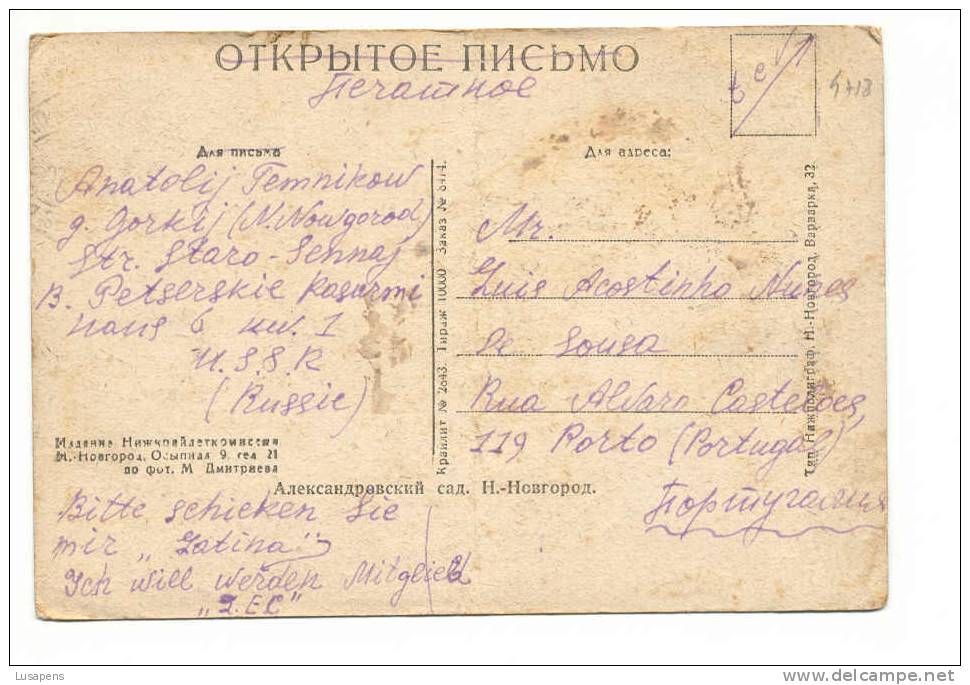 ОТКРЫТОЕ ПИСЬМО
Печатное
5718
Для письма
Anatolij Temnikow
g. Gorkij (N. Nowgorod)
Str. Staro-Sennaj
B. Petserskie Kasarmi
haus 6 kw. 1
U.S.S.R
(Russie)
Издание Нижкрайдеткомиссии
Н.-Новгород, Осыпная 9, тел 21
по фот. М. Дмитриева
Bitte schicken Sie
mir „Latina"
Ich will werden Mitglied
„I.E.C"
Крайлит № 2843. Тираж 10000 Заказ № 8474.
Александровский сад. Н.-Новгород.
tel
Для адреса:
Mr.
Luis Acostinho Nunes
de Sousa
Rua Alvaro Casteloes,
119 Porto (Portugal)
Португалия
Тип. Нижполиграф, Н.-Новгород, Варварка, 32
Lusapens
delcampe.net